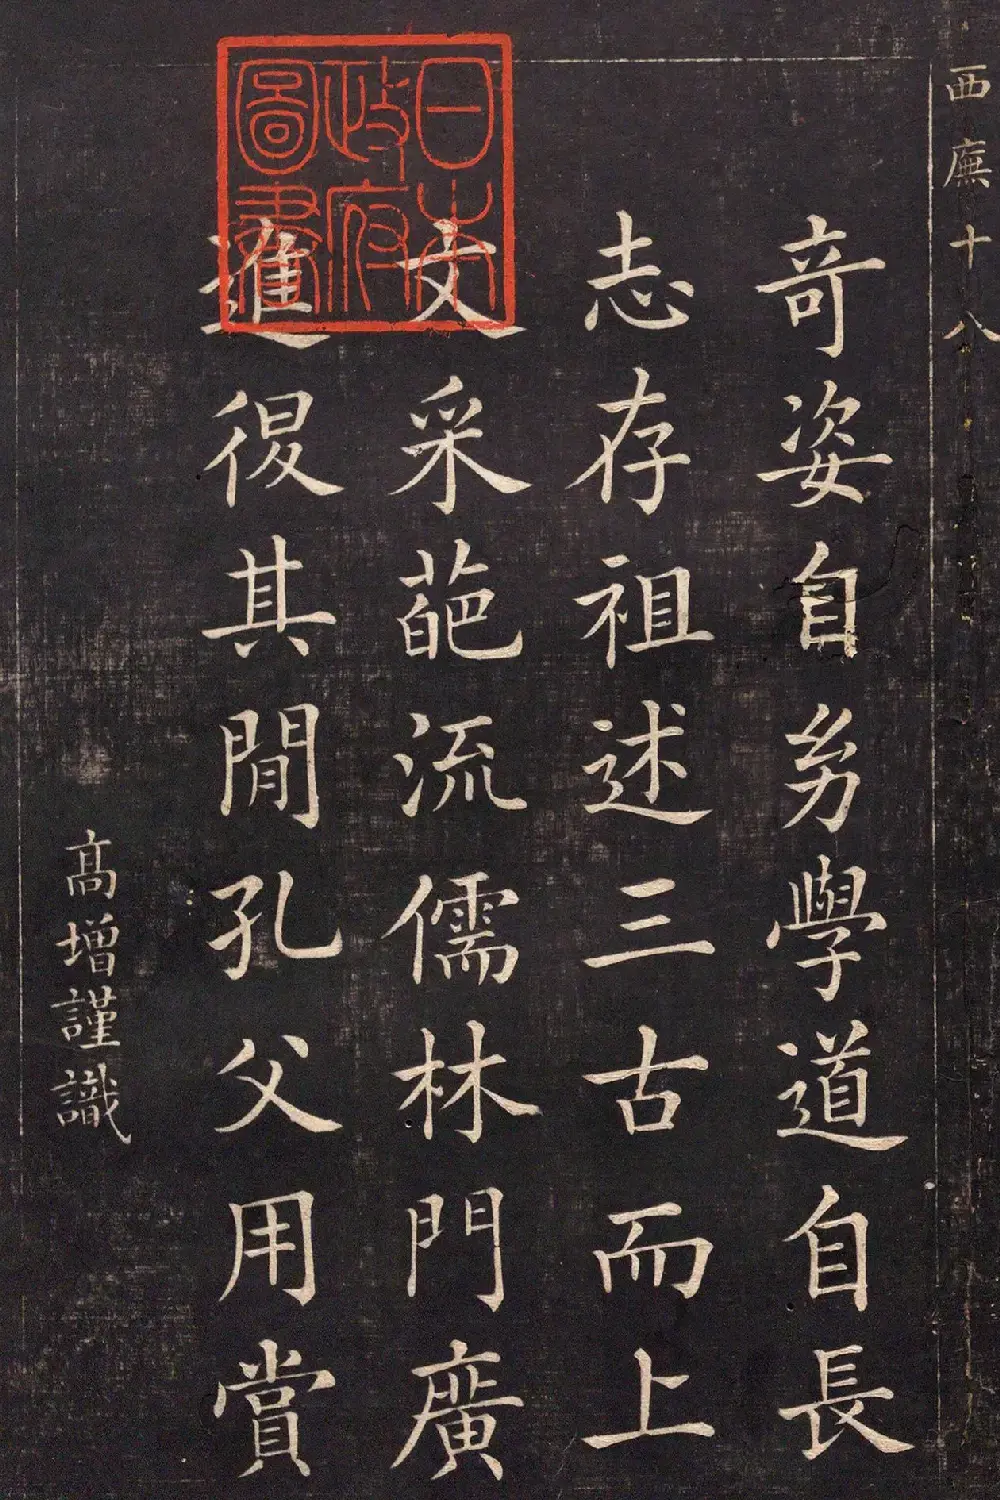 西廡十八
奇姿自㓜學道自長
志存祖述三古而上
文采葩流儒林門廣
進復其閒孔父用賞
高增謹識
日本
政府
圖書